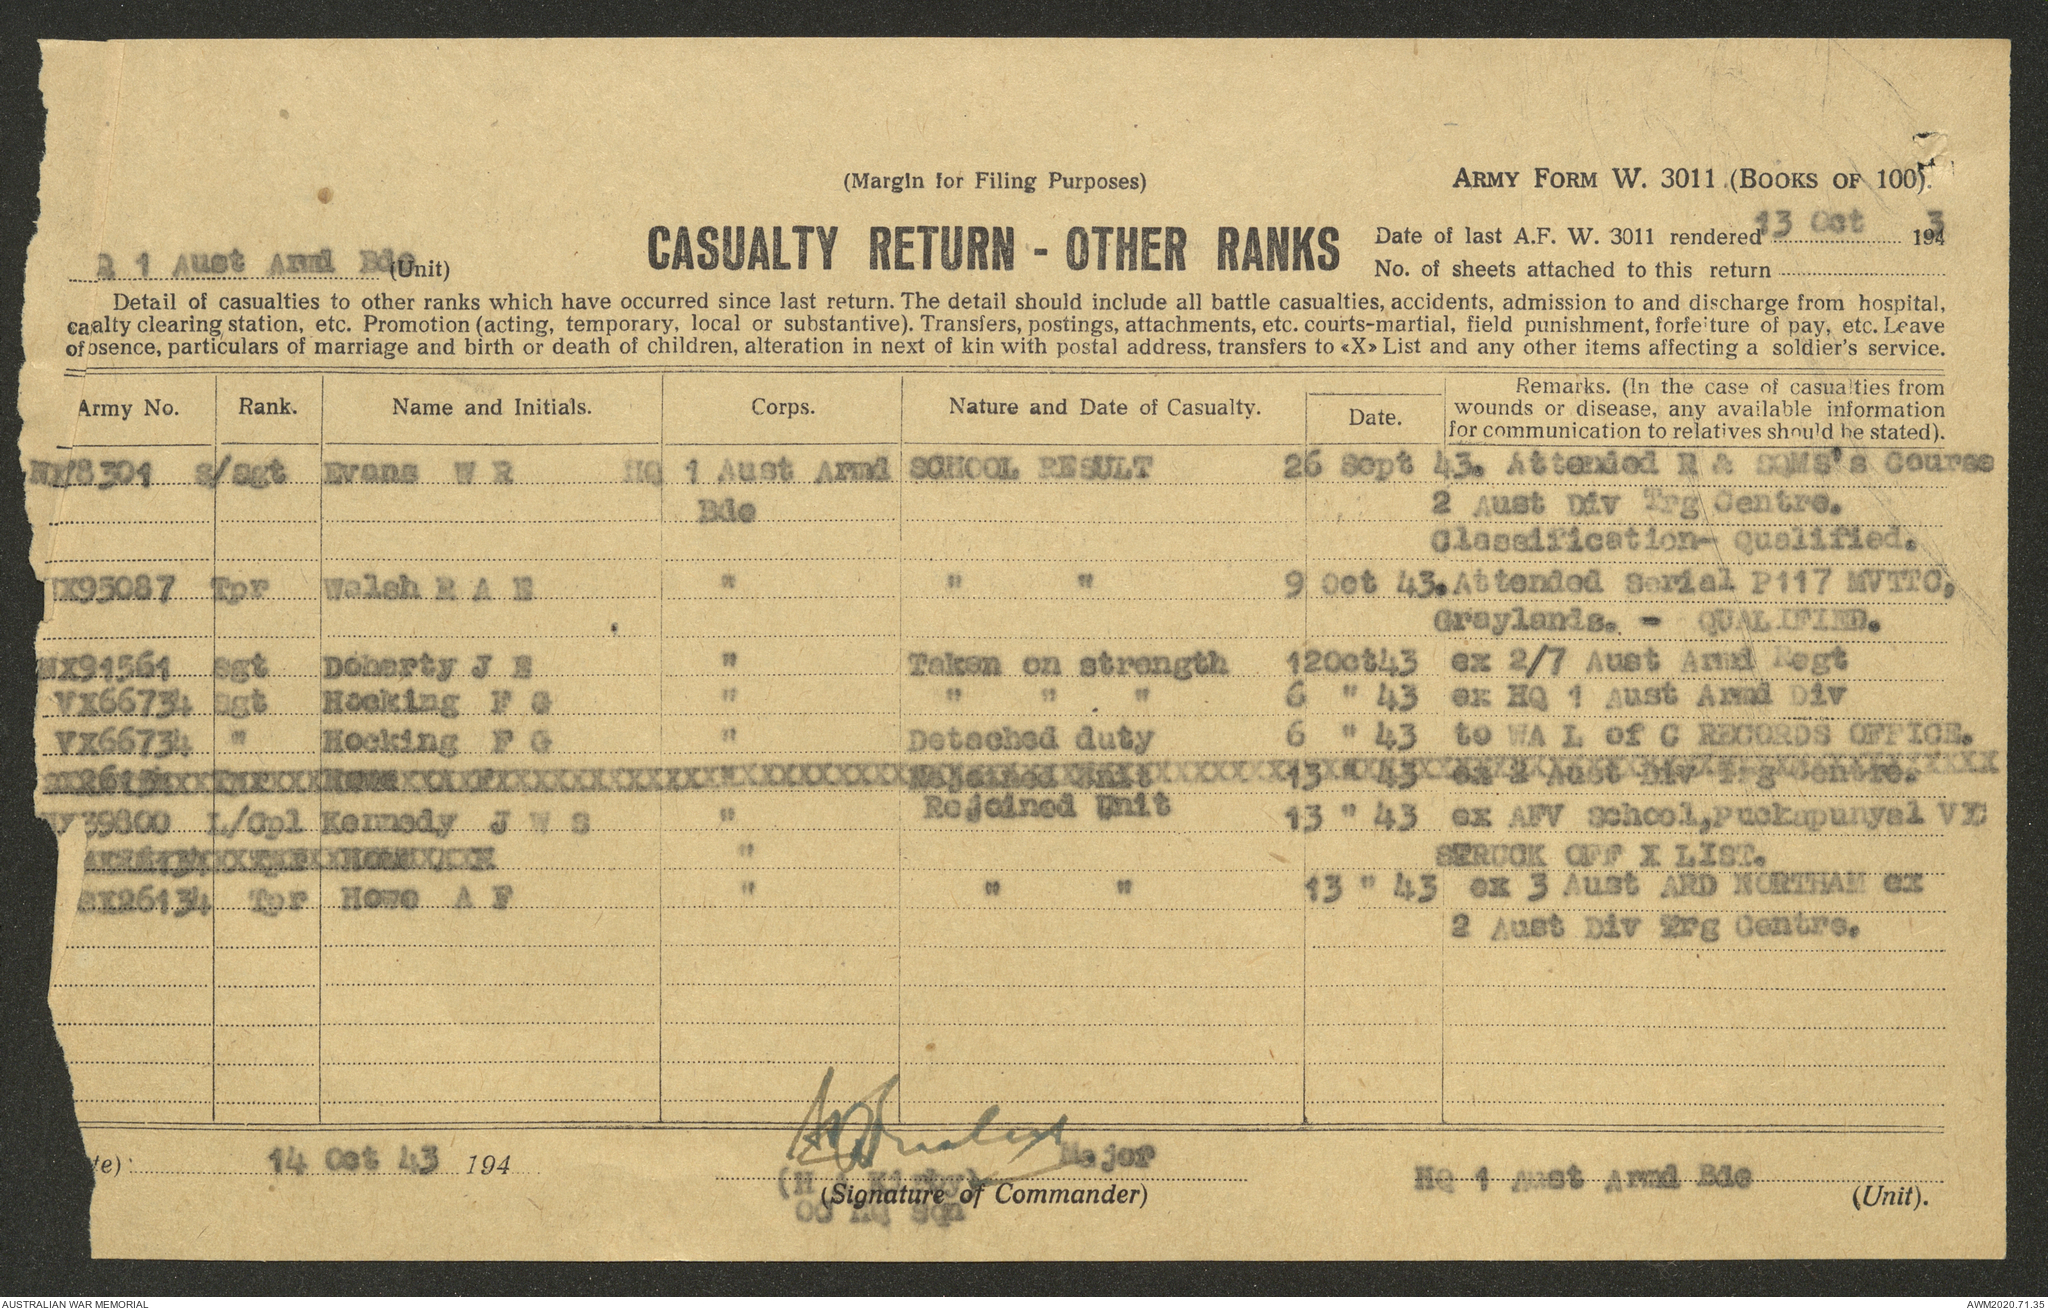 (Margin for Filing Purposes)
ARMY FORM W. 3011 (BOOKS OF 100).
CASUALTY RETURN - OTHER RANKS
Date of last A.F. W. 3011 rendered 13 Oct 1943
Q 1 Aust Armd Bde (Unit)
No. of sheets attached to this return
Detail of casualties to other ranks which have occurred since last return. The detail should include all battle casualties, accidents, admission to and discharge from hospital,
caalty clearing station, etc. Promotion (acting, temporary, local or substantive). Transfers, postings, attachments, etc. courts-martial, field punishment, forfeiture of pay, etc. Leave
of bsence, particulars of marriage and birth or death of children, alteration in next of kin with postal address, transfers to «X» List and any other items affecting a soldier's service.
Army No. Rank. Name and Initials. Corps. Nature and Date of Casualty. Date. Remarks. (In the case of casualties from
wounds or disease, any available information
for communication to relatives should be stated).
S/Sgt Evans W R HQ 1 Aust Armd SCHOOL RESULT 26 Sept 43. Attended R & SQMS's Course
Bde 2 Aust Div Trg Centre.
Classification- Qualified.
X95087 Tpr Walsh R A E " " " 9 Oct 43. Attended Serial P117 MVTTC,
Graylands. - QUALIFIED.
X91561 Sgt Doherty J E " Taken on strength 12Oct43 ex 2/7 Aust Armd Regt
VX66734 Sgt Hocking F G " " " " 6 " 43 ex HQ 1 Aust Armd Div
VX66734 " Hocking F G " Detached duty 6 " 43 to WA L of C RECORDS OFFICE.
X26134 Tpr Howe F " Rejoined Unit 13 " 43 ex 2 Aust Div Trg Centre.
X39800 L/Cpl Kennedy J W S " Rejoined Unit 13 " 43 ex AFV School, Puckapunyal VIC
" STRUCK OFF X LIST.
SX26134 Tpr Howe A F " " " 13 " 43 ex 3 Aust ARD NORTHAM ex
2 Aust Div Trg Centre.
te) 14 Oct 43 194
Major
(H A Kirby)
(Signature of Commander)
OC HQ Sqn
HQ 1 Aust Armd Bde
(Unit).
AUSTRALIAN WAR MEMORIAL
AWM2020.71.35